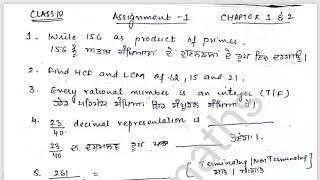 CLASS 10 Assignment -1 CHAPTER 1 & 2
1. Write 156 as product of primes.
156 ਨੂੰ ਅਭਾਜ ਸੰਖਿਆਵਾਂ ਦੇ ਗੁਣਨਫਲ ਦੇ ਰੂਪ ਵਿੱਚ ਦਰਸਾਓ।
2. Find HCF and LCM of 12, 15 and 21.
3. Every rational number is an integer (T/F)
ਹਰੇਕ ਪਰਿਮੇਯ ਸੰਖਿਆ ਇੱਕ ਸੰਪੂਰਨ ਸੰਖਿਆ ਹੈ।
4. 23/40 decimal representation is
23/40 ਦਾ ਦਸ਼ਮਲਵ ਰੂਪ ਹੋਵੇਗਾ।
5. 261 [Terminating / Non Terminating]